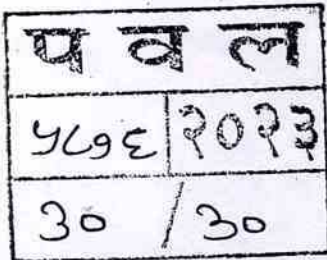 प व ल
५८७६ २०२३
३० / ३०